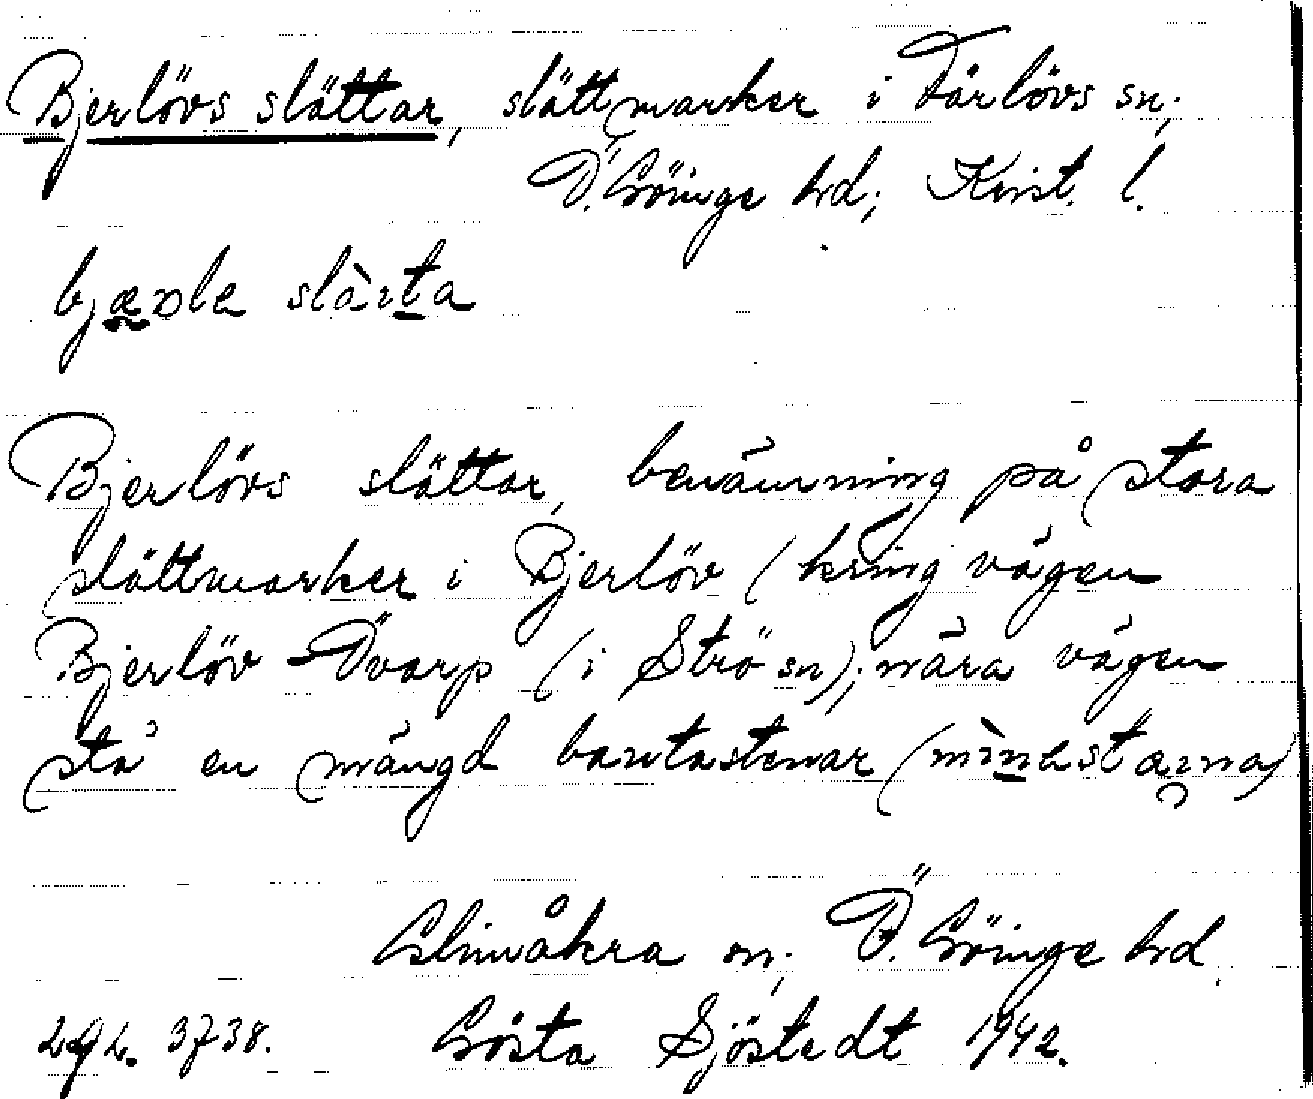 Bjerlövs slättar, slättmarker i Färlövs sn;
Ö. Göinge hd; Krist. l.
bjæɒle slàɪta
Bjerlövs slättar, benämning på stora
slättmarker i Bjerlöv (kring vägen
Bjerlöv - Övarp (i Strö sn); nära vägen
stå en mängd bautastenar (mìnestæɪna)
Glimåkra sn; Ö. Göinge hd.
3738. Gösta Sjöstedt 1942.